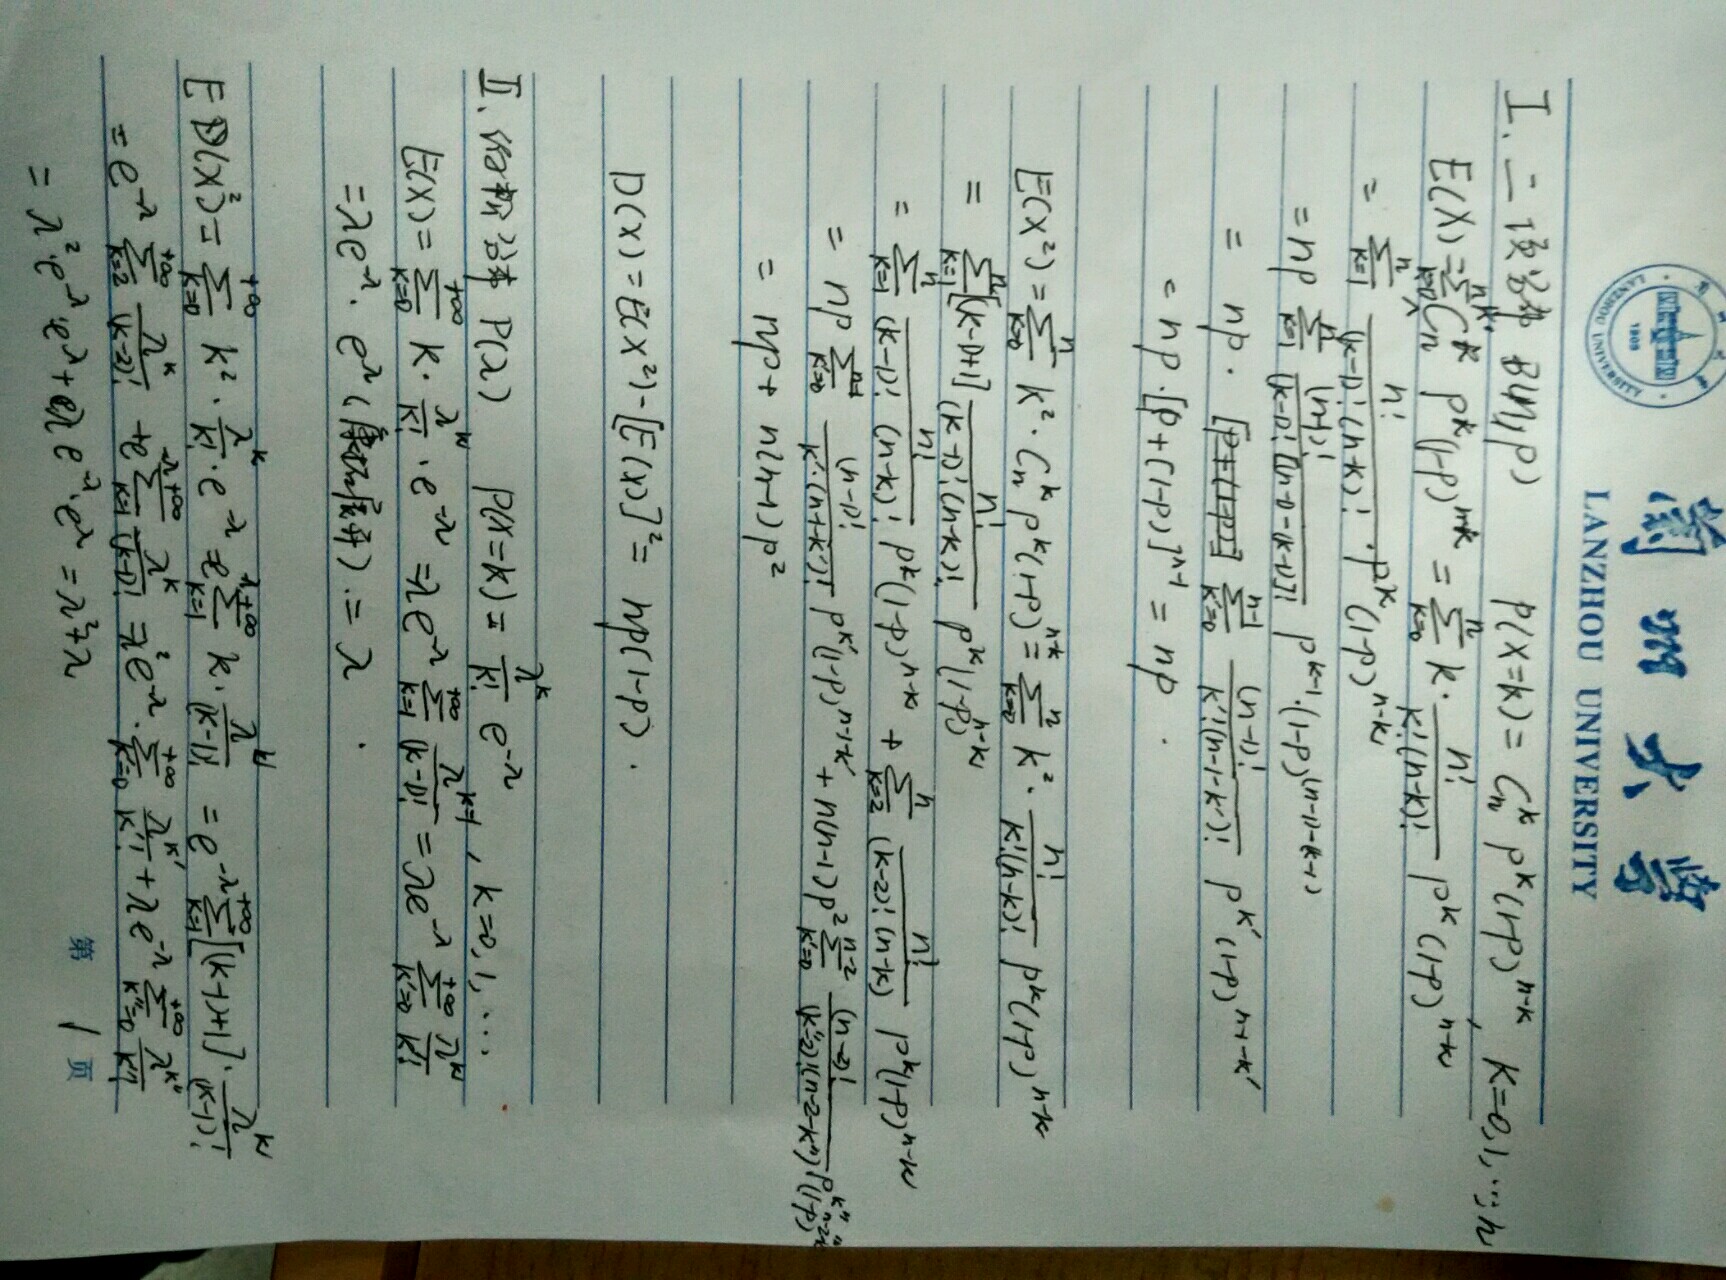 兰州大学
LANZHOU UNIVERSITY
LANZHOU UNIVERSITY
1909
I. 二项分布 B(n,p) P(X=k) = C_n^k p^k (1-p)^{n-k}, k=0,1,…,n
E(X) = \sum_{k=0}^{n} k·C_n^k p^k (1-p)^{n-k} = \sum_{k=0}^{n} k· \frac{n!}{k!(n-k)!} p^k (1-p)^{n-k}
= \sum_{k=1}^{n} \frac{n!}{(k-1)!(n-k)!} · p^k (1-p)^{n-k}
= np \sum_{k=1}^{n} \frac{(n-1)!}{(k-1)![(n-1)-(k-1)]!} p^{k-1}·(1-p)^{(n-1)-(k-1)}
= np · \sum_{k'=0}^{n-1} \frac{(n-1)!}{k'!(n-1-k')!} p^{k'} (1-p)^{n-1-k'}
= np·[p+(1-p)]^{n-1} = np .
E(X²) = \sum_{k=0}^{n} k²·C_n^k p^k (1-p)^{n-k} = \sum_{k=0}^{n} k²· \frac{n!}{k!(n-k)!} p^k (1-p)^{n-k}
= \sum_{k=1}^{n} [(k-1)+1] \frac{n!}{(k-1)!(n-k)!} p^k (1-p)^{n-k}
= \sum_{k=1}^{n} \frac{n!}{(k-1)!(n-k)!} p^k (1-p)^{n-k} + \sum_{k=2}^{n} \frac{n!}{(k-2)!(n-k)} p^k (1-p)^{n-k}
= np \sum_{k'=0}^{n-1} \frac{(n-1)!}{k'·(n+k')!} p^{k'} (1-p)^{n-1-k'} + n(n-1)p² \sum_{k''=0}^{n-2} \frac{(n-2)!}{(k''-2)!(n-2-k'')} p^{k''} (1-p)^{n-2-k''}
= np + n(n-1)p²
D(X) = E(X²) - [E(X)]² = np(1-p) .
II. 泊松分布 P(λ) P(X=k) = \frac{λ^k}{k!} e^{-λ}, k=0,1,…
E(X) = \sum_{k=0}^{+∞} k· \frac{λ^k}{k!} · e^{-λ} = λe^{-λ} \sum_{k=1}^{+∞} \frac{λ^{k-1}}{(k-1)!} = λe^{-λ} \sum_{k'=0}^{+∞} \frac{λ^{k'}}{k'!}
= λe^{-λ}·e^{λ} = λ .
E(X²) = \sum_{k=0}^{+∞} k²· \frac{λ^k}{k!} · e^{-λ} = e^{-λ} \sum_{k=1}^{+∞} k· \frac{λ^k}{(k-1)!} = e^{-λ} \sum_{k=1}^{+∞} [(k-1)+1]· \frac{λ^k}{(k-1)!}
= e^{-λ} \sum_{k=2}^{+∞} \frac{λ^k}{(k-2)!} + e^{-λ} \sum_{k=1}^{+∞} \frac{λ^k}{(k-1)!} = λ² e^{-λ}· \sum_{k'=0}^{+∞} \frac{λ^{k'}}{k'!} + λe^{-λ} \sum_{k''=0}^{+∞} \frac{λ^{k''}}{k''!}
= λ²·e^{-λ}·e^{λ} + λe^{-λ}·e^{λ} = λ²+λ
第 1 页